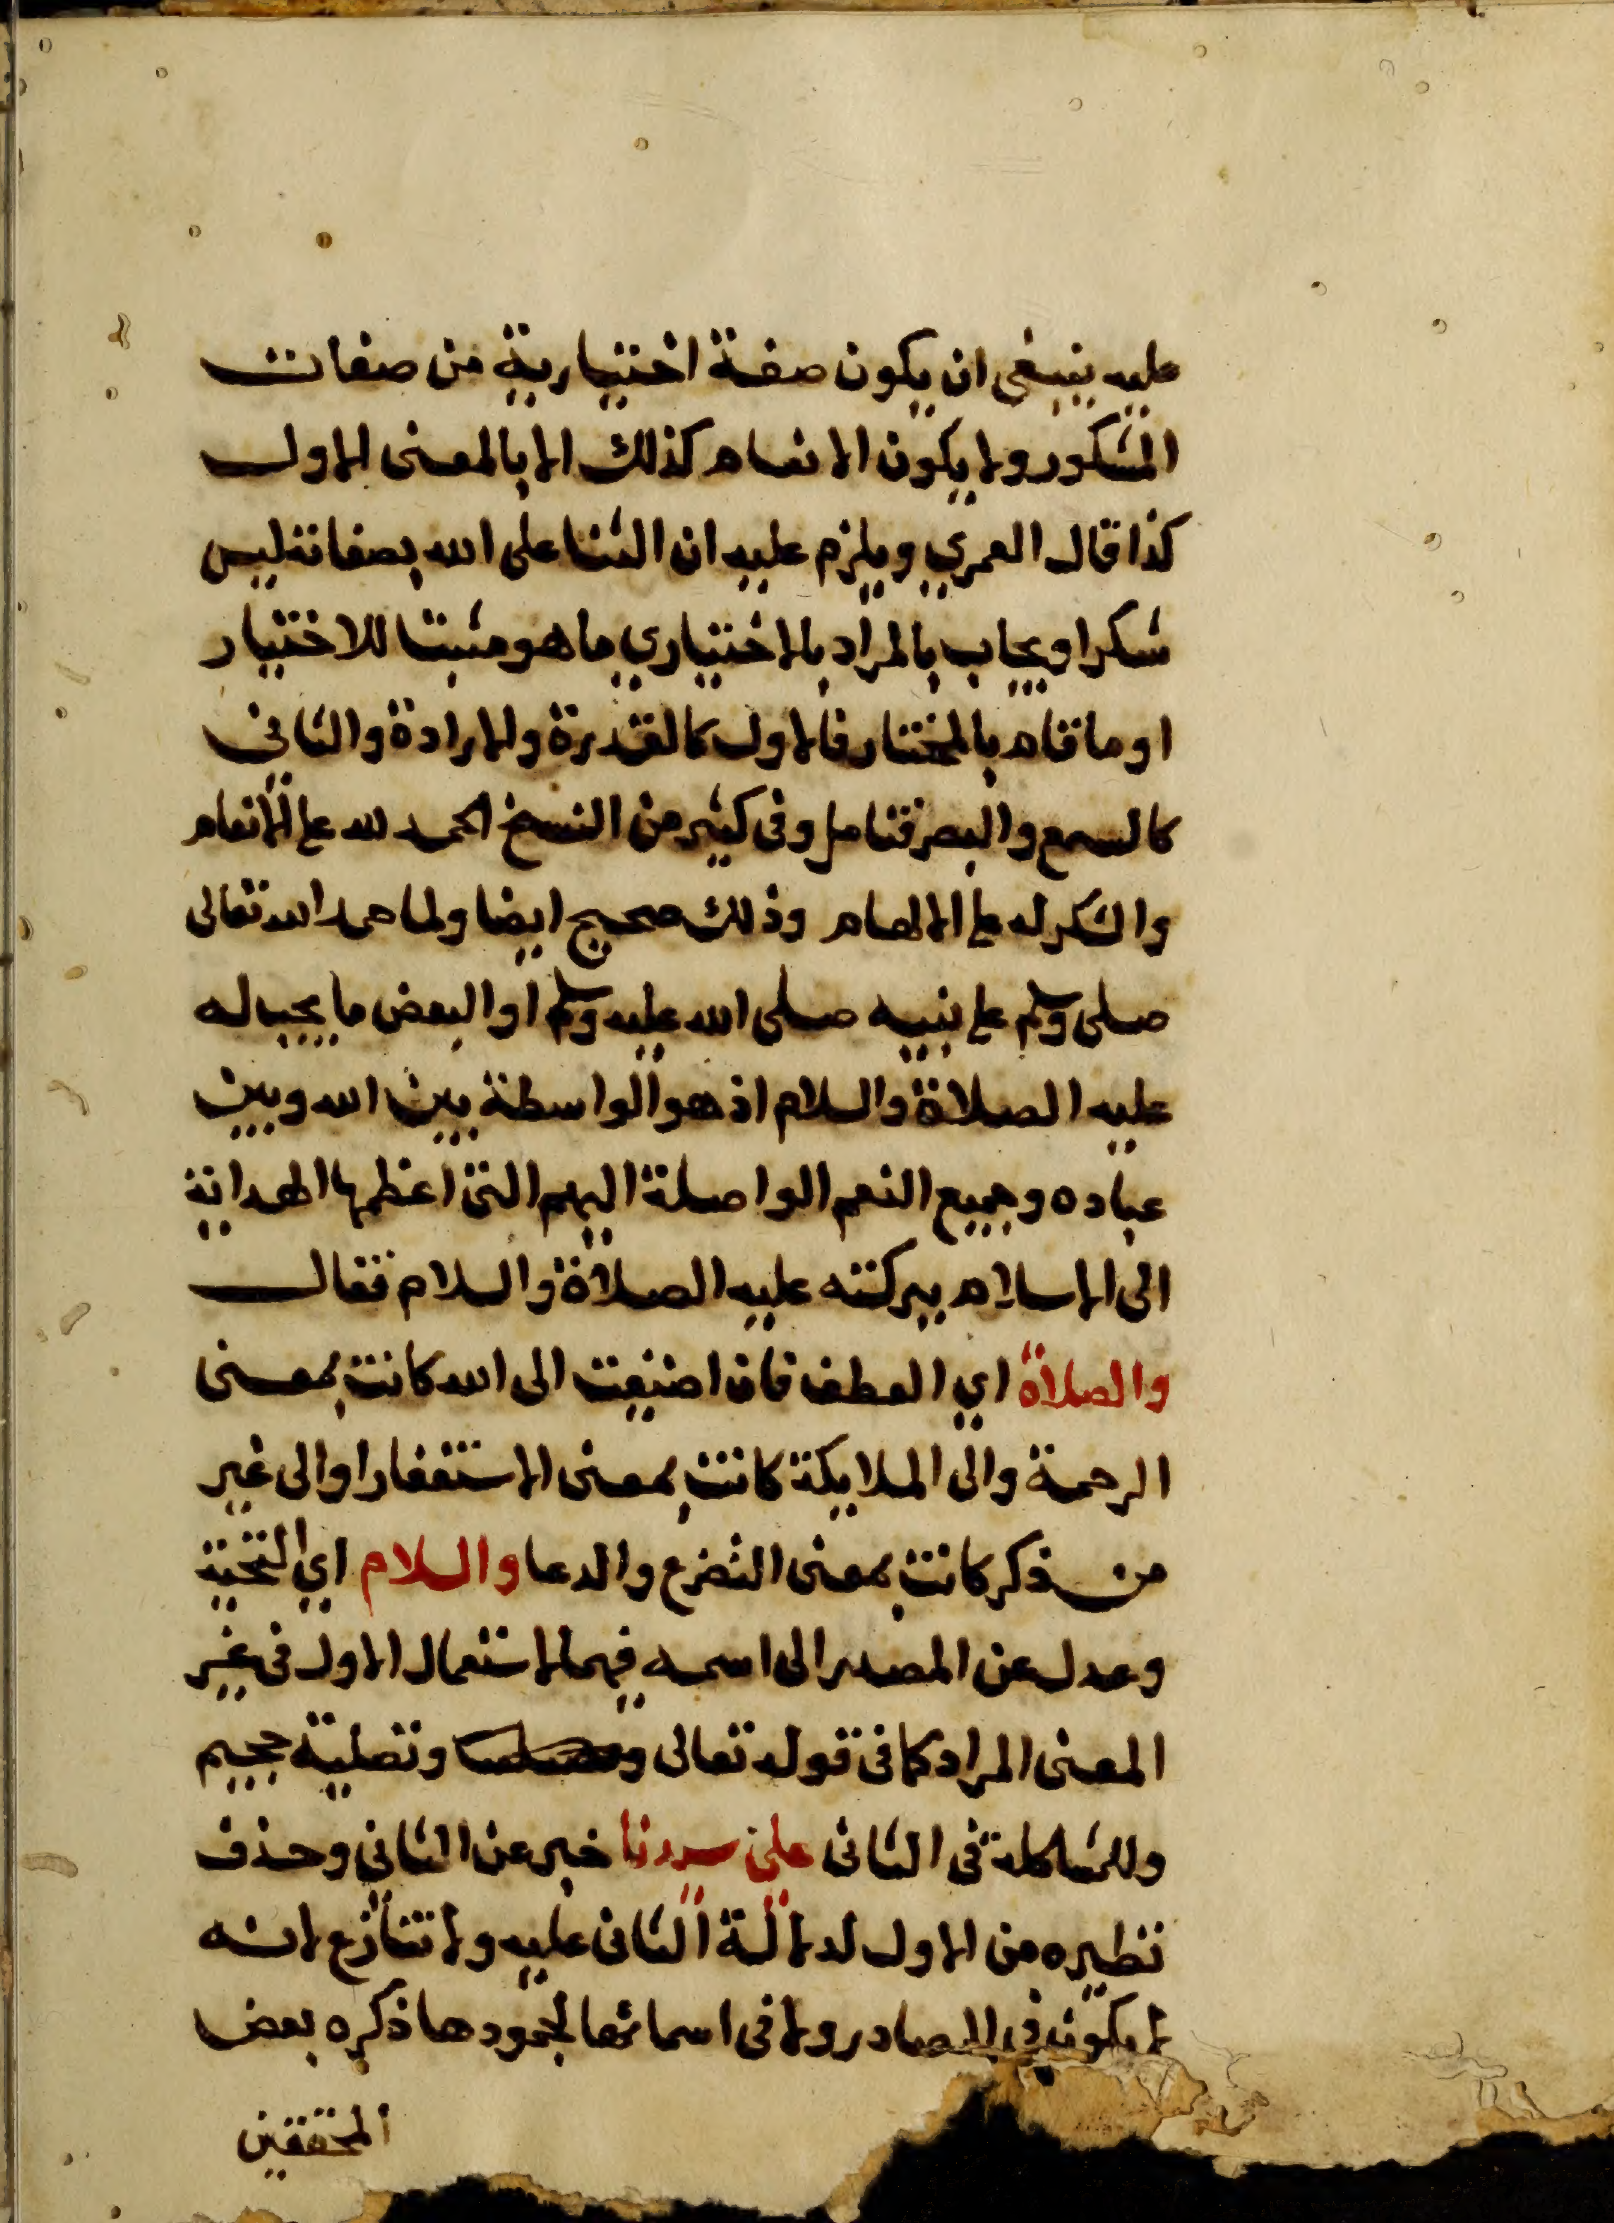 عليه ينبغي ان يكون صفة اختيارية من صفات
المشكور ولا يكون الانعام كذلك الا بالمعنى الاول
كذا قال العمري ويلزم عليه ان الثنا على الله بصفاته ليس
شكرا ويجاب بالمراد بالاختياري ما هو مثبتا للاختيار
او ما قام بالمختار فالاول كالقدرة والارادة والثاني
كالسمع والبصر فتامل وفي كثير من النسخ الحمد لله على الانعام
والشكر له على الالهام وذلك صحيح ايضا ولما حمد الله تعالى
صلى وسلم على نبيه صلى الله عليه وسلم اوالبعض ما يجب له
عليه الصلاة والسلام اذ هو الواسطة بين الله وبين
عباده وجميع النعم الواصلة اليهم التي اعظمها الهداية
الى الاسلام ببركته عليه الصلاة والسلام فقال
والصلاة اي العطف فان اضيفت الى الله كانت بمعنى
الرحمة والى الملايكة كانت بمعنى الاستغفار او الى غير
من ذكر كانت بمعنى التضرع والدعا والسلام اي التحية
وعدل عن المصدر الى اسمه فيهما لاستعمال الاول في غير
المعنى المراد كما في قوله تعالى وتصلية جحيم
وللمشاكلة في الثاني على سيدنا خبر عن الثاني وحذف
نظيره من الاول لدلالة الثاني عليه ولا تنازع لانه
لا يكون في المصادر ولا في اسمائها لجمودها ذكره بعض
المحققين